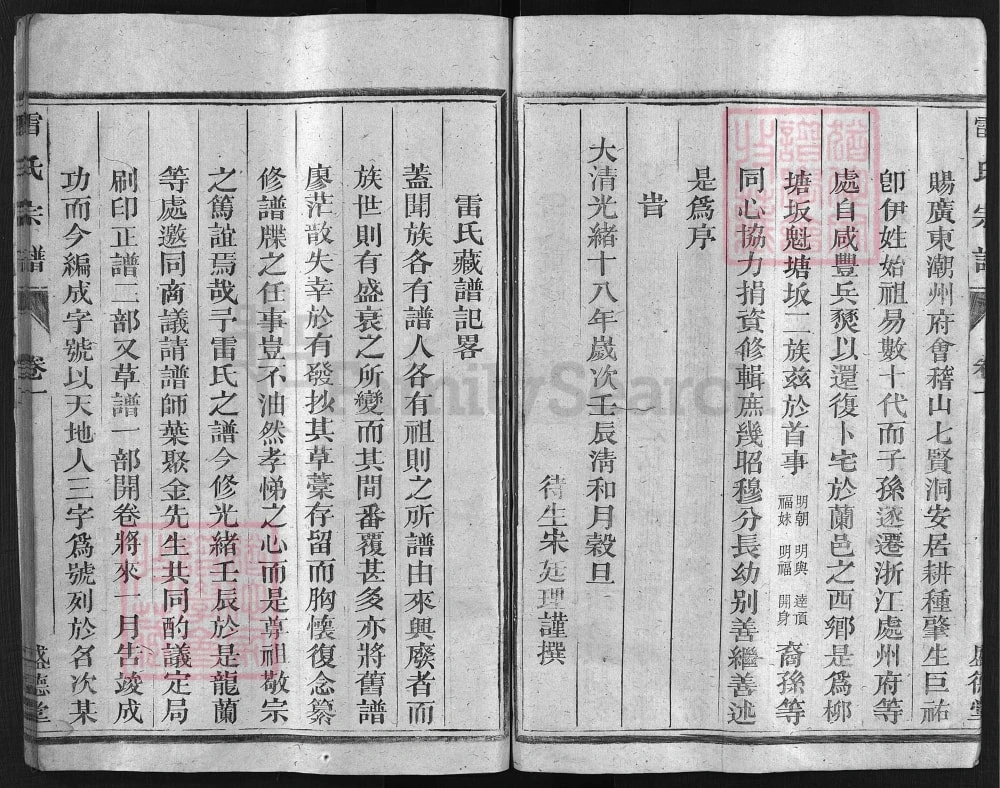 賜廣東潮州府會稽山七賢洞安居耕種肇生巨祐
卽伊姓始祖易數十代而子孫遂遷浙江處州府等
處自咸豐兵燹以還復卜宅於蘭邑之西鄉是爲柳
塘坂魁塘坂二族兹於首事 明朝 明興 逵頂 福妹 明福 開身 裔孫等
同心協力捐資修輯庶幾昭穆分長幼别善繼善述
是爲序
旹
大清光緒十八年嵗次壬辰淸和月榖旦
待生宋廷理謹撰
雷氏藏譜記畧
蓋聞族各有譜人各有祖則之所譜由來興廢者而
族世則有盛衰之所變而其間番覆甚多亦將舊譜
廖茫散失幸於有發抄其草藁存留而胸懷復念纂
修譜牒之任事豈不油然孝悌之心而是尊祖敬宗
之篤誼焉哉予雷氏之譜今修光緒壬辰於是龍蘭
等處邀同商議請譜師葉聚金先生共同酌議定局
刷印正譜二部又草譜一部開卷將來一月告竣成
功而今編成字號以天地人三字爲號列於名次某
雷氏宗譜 卷一 盛德堂
FamilySearch